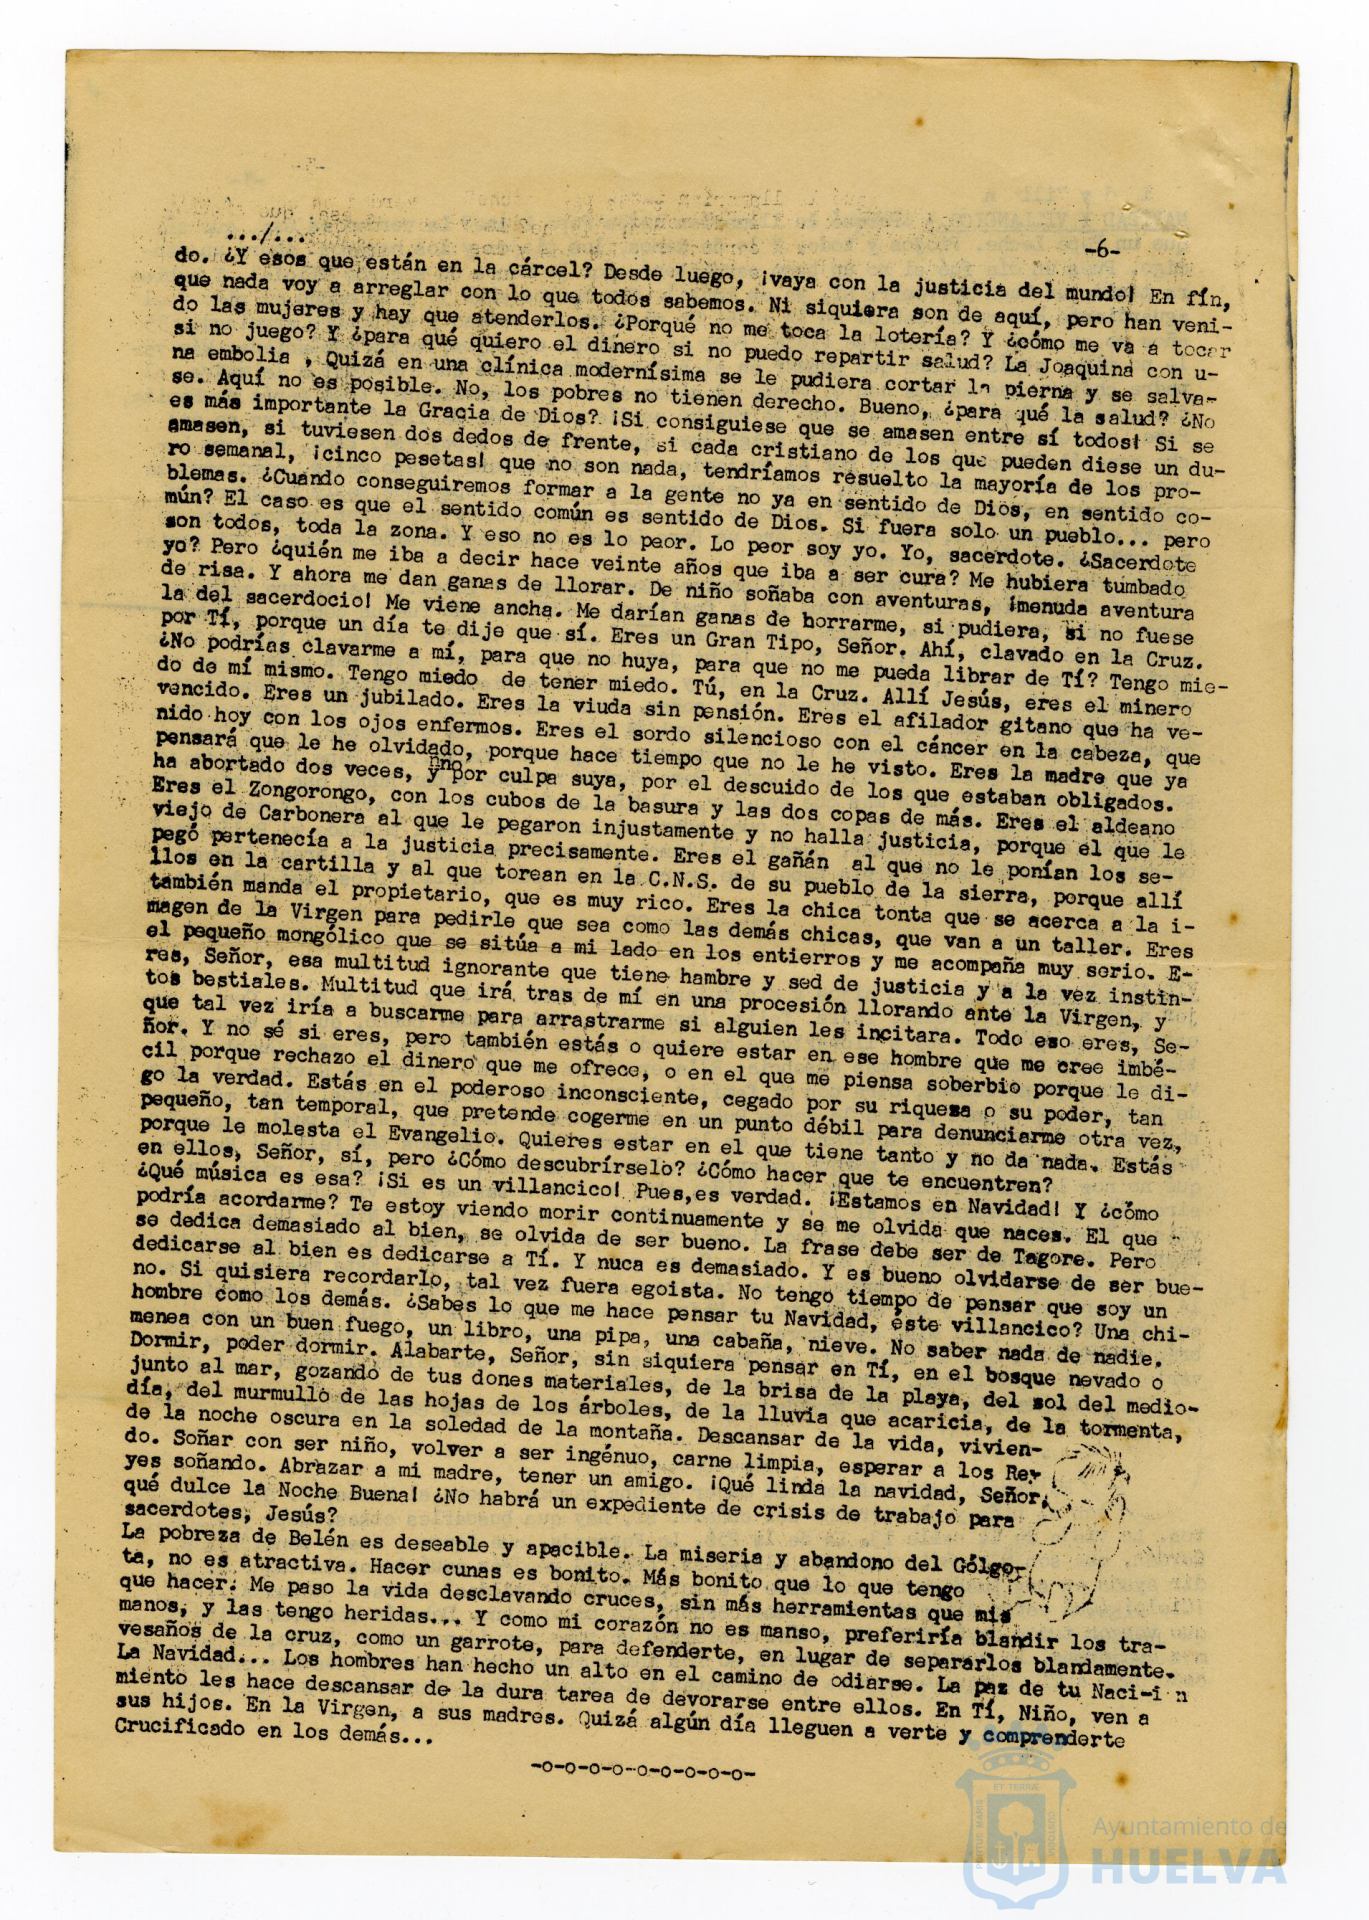 .../...
-6-
do. ¿Y esos que están en la cárcel? Desde luego, ¡vaya con la justicia del mundo! En fín,
que nada voy a arreglar con lo que todos sabemos. Ni siquiera son de aquí, pero han veni-
do las mujeres y hay que atenderlos. ¿Porqué no me toca la lotería? Y ¿cómo me va a tocar
si no juego? Y ¿para qué quiero el dinero si no puedo repartir salud? La Joaquina con u-
na embolia . Quizá en una clínica modernísima se le pudiera cortar la pierna y se salva-
se. Aquí no es posible. No, los pobres no tienen derecho. Bueno, ¿para qué la salud? ¿No
es más importante la Gracia de Dios? ¡Si consiguiese que se amasen entre sí todos! Si se
amasen, si tuviesen dos dedos de frente, si cada cristiano de los que pueden diese un du-
ro semanal, ¡cinco pesetas! que no son nada, tendríamos resuelto la mayoría de los pro-
blemas. ¿Cuándo conseguiremos formar a la gente no ya en sentido de Dios, en sentido co-
mún? El caso es que el sentido común es sentido de Dios. Si fuera solo un pueblo... pero
son todos, toda la zona. Y eso no es lo peor. Lo peor soy yo. Yo, sacerdote. ¿Sacerdote
yo? Pero ¿quién me iba a decir hace veinte años que iba a ser cura? Me hubiera tumbado
de risa. Y ahora me dan ganas de llorar. De niño soñaba con aventuras, ¡menuda aventura
la del sacerdocio! Me viene ancha. Me darían ganas de borrarme, si pudiera, si no fuese
por Tí, porque un día te dije que sí. Eres un Gran Tipo, Señor. Ahí, clavado en la Cruz.
¿No podrías clavarme a mí, para que no huya, para que no me pueda librar de Tí? Tengo mie-
do de mí mismo. Tengo miedo de tener miedo. Tú, en la Cruz. Allí Jesús, eres el minero
vencido. Eres un jubilado. Eres la viuda sin pensión. Eres el afilador gitano que ha ve-
nido hoy con los ojos enfermos. Eres el sordo silencioso con el cáncer en la cabeza, que
pensará que le he olvidado, porque hace tiempo que no le he visto. Eres la madre que ya
ha abortado dos veces, y no por culpa suya, por el descuido de los que estaban obligados.
Eres el Zongorongo, con los cubos de la basura y las dos copas de más. Eres el aldeano
viejo de Carbonera al que le pegaron injustamente y no halla justicia, porque el que le
pegó pertenecía a la justicia precisamente. Eres el gañán al que no le ponían los se-
llos en la cartilla y al que torean en la C.N.S. de su pueblo de la sierra, porque allí
también manda el propietario, que es muy rico. Eres la chica tonta que se acerca a la i-
magen de la Virgen para pedirle que sea como las demás chicas, que van a un taller. Eres
el pequeño mongólico que se sitúa a mi lado en los entierros y me acompaña muy serio. E-
res, Señor, esa multitud ignorante que tiene hambre y sed de justicia y a la vez instin-
tos bestiales. Multitud que irá tras de mí en una procesión llorando ante la Virgen, y
que tal vez iría a buscarme para arrastrarme si alguien les incitara. Todo eso eres, Se-
ñor. Y no sé si eres, pero también estás o quiere estar en ese hombre que me cree imbé-
cil porque rechazo el dinero que me ofrece, o en el que me piensa soberbio porque le di-
go la verdad. Estás en el poderoso inconsciente, cegado por su riquesa o su poder, tan
pequeño, tan temporal, que pretende cogerme en un punto débil para denunciarme otra vez,
porque le molesta el Evangelio. Quieres estar en el que tiene tanto y no da nada. Estás
en ellos, Señor, sí, pero ¿Cómo descubrírselo? ¿Cómo hacer que te encuentren?
¿Qué música es esa? ¡Si es un villancico! Pues,es verdad. ¡Estamos en Navidad! Y ¿cómo
podría acordarme? Te estoy viendo morir continuamente y se me olvida que naces. El que
se dedica demasiado al bien, se olvida de ser bueno. La frase debe ser de Tagore. Pero
dedicarse al bien es dedicarse a Tí. Y nuca es demasiado. Y es bueno olvidarse de ser bue-
no. Si quisiera recordarlo, tal vez fuera egoista. No tengo tiempo de pensar que soy un
hombre como los demás. ¿Sabes lo que me hace pensar tu Navidad, éste villancico? Una chi-
menea con un buen fuego, un libro, una pipa, una cabaña, nieve. No saber nada de nadie.
Dormir, poder dormir. Alabarte, Señor, sin siquiera pensar en Tí, en el bosque nevado o
junto al mar, gozando de tus dones materiales, de la brisa de la playa, del sol del medio-
día, del murmullo de las hojas de los árboles, de la lluvia que acaricia, de la tormenta,
de la noche oscura en la soledad de la montaña. Descansar de la vida, vivien-
do. Soñar con ser niño, volver a ser ingénuo, carne limpia, esperar a los Re-
yes soñando. Abrazar a mi madre, tener un amigo. ¡Qué linda la navidad, Señor,
qué dulce la Noche Buena! ¿No habrá un expediente de crisis de trabajo para
sacerdotes, Jesús?
La pobreza de Belén es deseable y apacible. La miseria y abandono del Gólgo-
ta, no es atractiva. Hacer cunas es bonito. Más bonito que lo que tengo
que hacer. Me paso la vida desclavando cruces, sin más herramientas que mis
manos, y las tengo heridas... Y como mi corazón no es manso, preferiría blandir los tra-
vesaños de la cruz, como un garrote, para defenderte, en lugar de separarlos blandamente.
La Navidad... Los hombres han hecho un alto en el camino de odiarse. La paz de tu Naci-i n
miento les hace descansar de la dura tarea de devorarse entre ellos. En Tí, Niño, ven a
sus hijos. En la Virgen, a sus madres. Quizá algún día lleguen a verte y comprenderte
Crucificado en los demás...
-o-o-o-o-o-o-o-o-o-
Ayuntamiento de
HUELVA